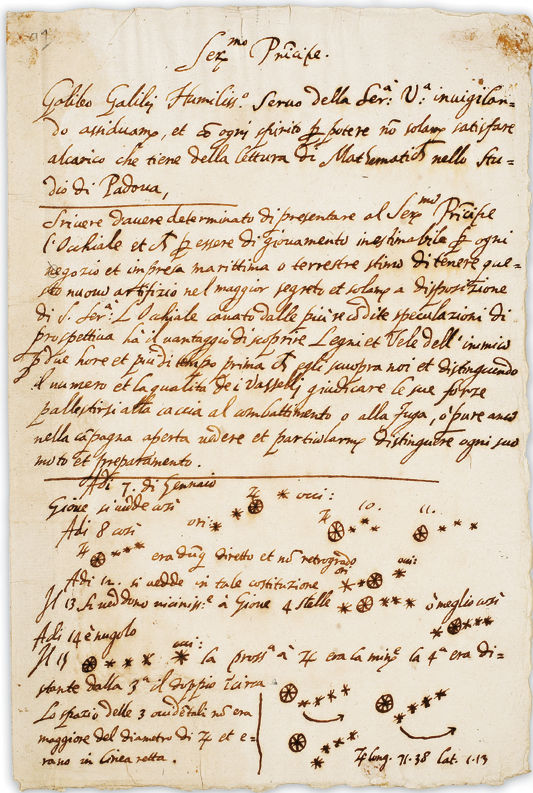 Ser.mo Principe.
Galileo Galilej Humiliss.o Servo della Ser.a V.a invigilan=
do assiduam.te, et cō ogni spirito p potere nō solam.te satisfare
alcarico che tiene della lettura di Mathematich nello Stu=
dio di Padova,
Scrivere davere determinato di presentare al Ser.mo Pricipe
l'Occhiale et ch p essere di giovamento inestimabile p ogni
negozio et impresa marittima o terrestre stimo di tenere que=
sto nuovo artifizio nel maggior segreto et solam.te a disposizione
di S. Ser.a L'Occhiale cavato dalle più recōdite speculazioni di
prospettiva ha il vantaggio di scoprire Legni et Vele dell'inimico
p due hore et più di tempo prima ch egli scuopra noi et distinguendo
il numero et la qualità dei Vasselli giudicare le sue forze
pallestirsi alla caccia al combattimento o alla fuga, o pure anco
nella cāpagna aperta vedere et particolarm.te distinguere ogni suo
moto et preparamento.
Adi 7. di Gennaio
Giove si vedde così ♃ occi:
Adi 8 così ori: ♃ 10. 11.
♃ era dūq diretto et nō retrogrado
Adi 12. si vedde in tale costituzione ori occi:
Il 13 si veddono vicinis:e à Giove 4 stelle ò meglio così
Adi 14 è nugolo
Il 15 occi: la pross.a à ♃ era la min.e la 4.a era di=
stante dalla 3.a il doppio icirca
Lo spazio delle 3 occidētali nō era
maggiore del diametro di ♃ et e=
rano in linea retta.
♃ long. 71.38 lat. 1.13